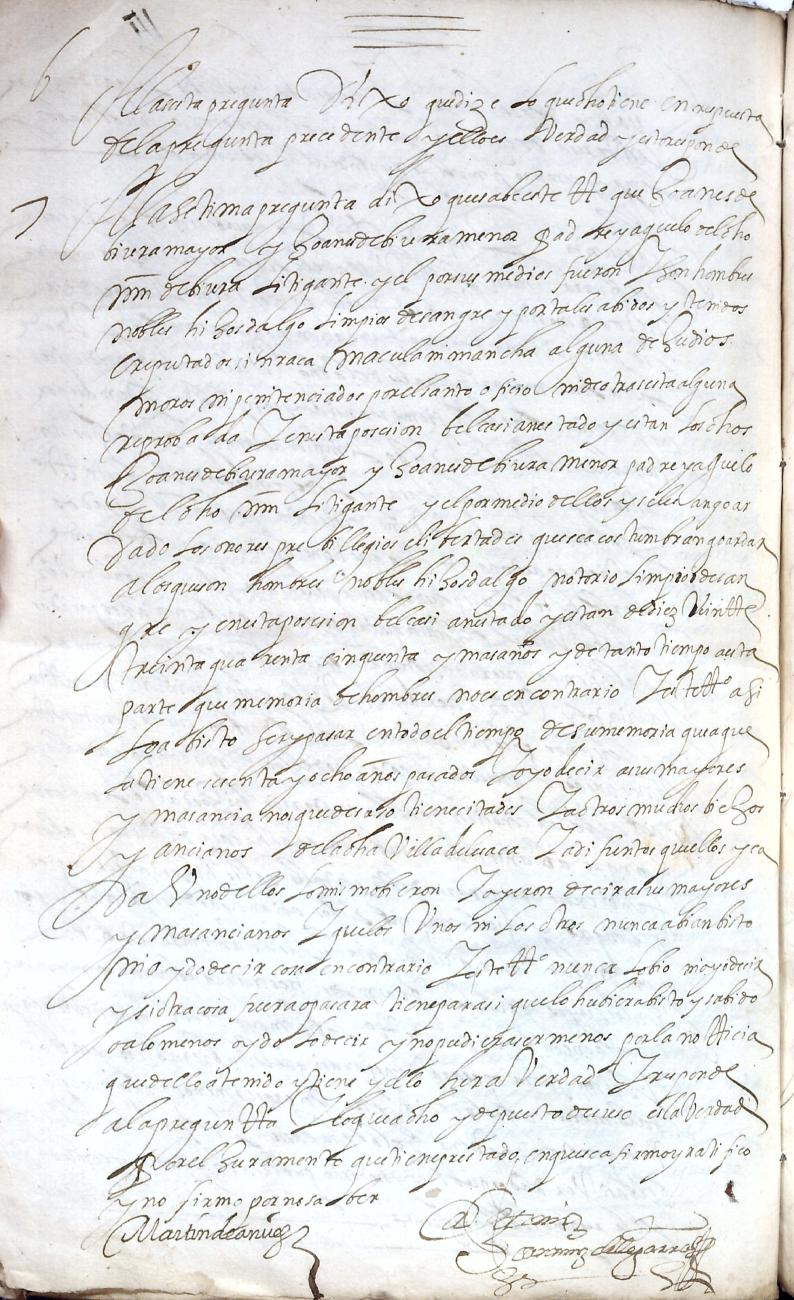 6 A la sesta pregunta Dixo que dize lo que dho tiene en respuesta
de la pregunta precedente y ello es Verdad y esto responde
7 A la setima pregunta dixo que sabe este tto que Joanes de
biura mayor y Joanes de biura menor padre y aguelo del dho
mm de biura Litigante y el por sus medios fueron y son hombres
nobles hijosdalgo limpios de sangre y por tales abidos y tenidos
e reputados sin raca macula ni mancha alguna de Judios
moros ni penitenciados por el santo oficio ni de otra seta alguna
reprobada Y en esta posesion bel casi an estado y estan los dhos
Joanes de biura mayor y Joanes de biura menor padre y aguelo
del dho mm Litigante y el por medio dellos y se les an goar
dado los onores prebillegios e libertades que se acostumbran goardar
a los que son hombres nobles hijosdalgo notorio limpios de san
gre y en esta posesion bel casi an estado y estan de diez Veintte
treinta quarenta cinquenta y mas años y de tanto tiempo a esta
parte que memoria de hombres no es en contrario Y este tto asi
lo a bisto ser y pasar en todo el tiempo de su memoria que a que
le tiene sesenta y ocho años pasados Y oyo decir a sus mayores
y mas ancianos que de suso tiene citados Y a otros muchos biejos
y ancianos de la dha Villa de lesaca Y a difuntos que ellos y ca
da Uno dellos lo mismo bieron Y oyeron decir a sus mayores
y mas ancianos Y que los Unos ni los otros nunca abian bisto
ni oydo decir cosa en contrario Y este tto nunca lo bio ni oyo decir
y si otra cosa fuera o pasara tiene para si que lo hubiera bisto y sabido
o a lo menos oydo lo decir y no pudiera ser menos por la notticia
que dello a tenido y tiene y ello hera Verdad Y responde
a la preguntta Y lo que a dho y depuesto de suso es la Verdad
por el Juramento que tiene prestado, en que se afirmo y ratifico
y no firmo por no saber
Martin de anuez